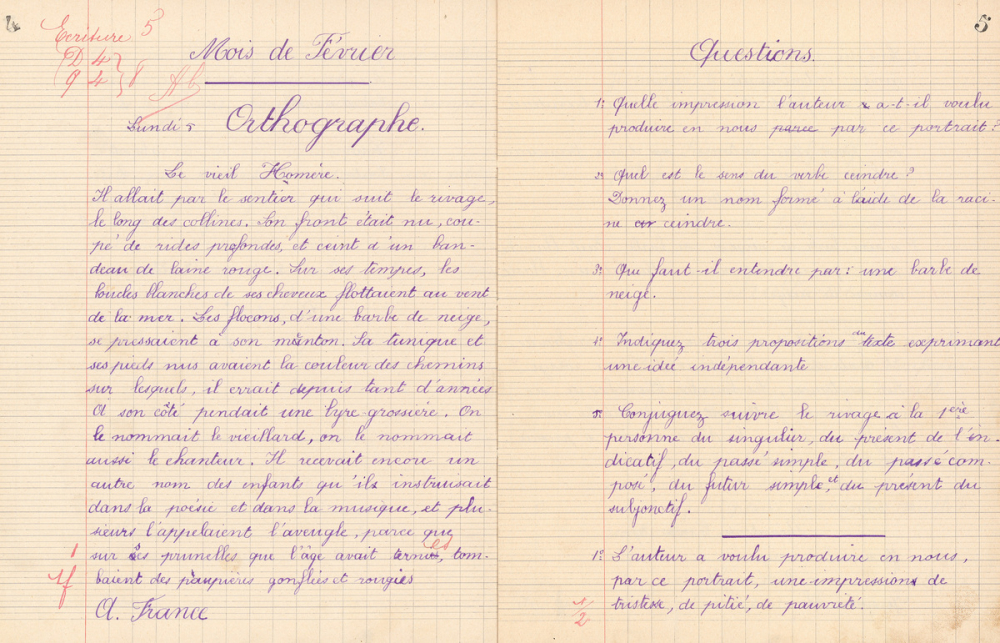 4
Ecriture 5
D 4
q 4 } 8 Ab
Mois de Février
Lundi 5 Orthographe.
Le vieil Homère.
Il allait par le sentier qui suit le rivage,
le long des collines. Son front était nu, cou-
pé de rides profondes, et ceint d'un ban-
deau de laine rouge. Sur ses tempes, les
boucles blanches de ses cheveux flottaient au vent
de la mer. Les flocons, d'une barbe de neige,
se pressaient à son menton. Sa tunique et
ses pieds nus avaient la couleur des chemins
sur lesquels, il errait depuis tant d'années
A son côté pendait une lyre grossière. On
le nommait le vieillard, on le nommait
aussi le chanteur. Il recevait encore un
autre nom des enfants qu'ils instruisait
dans la poésie et dans la musique, et plu-
sieurs l'appelaient l'aveugle, parce que
sur ses prunelles que l'âge avait ternies, tom-
baient des paupières gonflées et rougies
A. France
1
5
Questions.
1º Quelle impression l'auteur a-t-il voulu
produire en nous parce par ce portrait ?
2º Quel est le sens du verbe ceindre ?
Donnez un nom formé à l'aide de la raci-
ne ceindre.
3º Que faut-il entendre par : une barbe de
neige.
4º Indiquez trois propositions du texte exprimant
une idée indépendante
5º Conjuguez suivre le rivage à la 1ère
personne du singulier, du présent de l'in-
dicatif, du passé simple, du passé com-
posé, du futur simple, et du présent du
subjonctif.
1º L'auteur a voulu produire en nous,
par ce portrait, une impression de
tristesse, de pitié, de pauvreté.
1/2